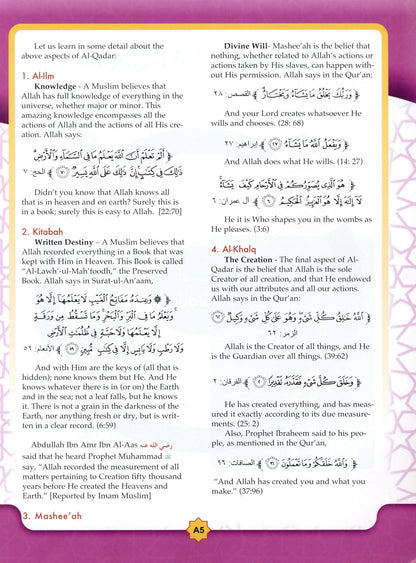 Let us learn in some detail about the
above aspects of Al-Qadar:
1. Al-Ilm
Knowledge - A Muslim believes that
Allah has full knowledge of everything in the
universe, whether major or minor. This
amazing knowledge encompasses all the
actions of Allah and the actions of all His cre-
ation. Allah says:
﴿ أَلَمْ تَعْلَمْ أَنَّ ٱللَّهَ يَعْلَمُ مَا فِى ٱلسَّمَآءِ وَٱلْأَرْضِ
إِنَّ ذَٰلِكَ فِى كِتَٰبٍ إِنَّ ذَٰلِكَ عَلَى ٱللَّهِ يَسِيرٌ ﴿٧٠﴾ ﴾ الحج: ٧
Didn't you know that Allah knows all
that is in heaven and on earth? Surely this is
in a book; surely this is easy to Allah. [22:70]
2. Kitabah
Written Destiny – A Muslim believes that
Allah recorded everything in a Book that was
kept with Him in Heaven. This Book is called
"Al-Lawh'-ul-Mah'foodh," the Preserved
Book. Allah says in Surat-ul-An'aam,
﴿ ۞ وَعِندَهُۥ مَفَاتِحُ ٱلْغَيْبِ لَا يَعْلَمُهَآ إِلَّا هُوَ
وَيَعْلَمُ مَا فِى ٱلْبَرِّ وَٱلْبَحْرِ وَمَا تَسْقُطُ مِن وَرَقَةٍ
إِلَّا يَعْلَمُهَا وَلَا حَبَّةٍ فِى ظُلُمَٰتِ ٱلْأَرْضِ
وَلَا رَطْبٍ وَلَا يَابِسٍ إِلَّا فِى كِتَٰبٍ مُّبِينٍ ﴿٥٩﴾ ﴾ الأنعام: ٥٩
And with Him are the keys of (all that is
hidden); none knows them but He. And He
knows whatever there is in (or on) the Earth
and in the sea; not a leaf falls, but he knows
it. There is not a grain in the darkness of the
Earth, nor anything fresh or dry, but is writ-
ten in a clear record. (6:59)
Abdullah Ibn Amr Ibn Al-Aas رضي الله عنه
said that he heard Prophet Muhammad ﷺ
say, "Allah recorded the measurement of all
matters pertaining to Creation fifty thousand
years before He created the Heavens and
Earth." [Reported by Imam Muslim]
3. Mashee'ah
Divine Will- Mashee'ah is the belief that
nothing, whether related to Allah's actions or
actions taken by His slaves, can happen with-
out His Permission. Allah says in the Qur'an:
﴿ وَرَبُّكَ يَخْلُقُ مَا يَشَآءُ وَيَخْتَارُ ﴾ القصص: ٢٨
And your Lord creates whatsoever He
wills and chooses. (28: 68)
﴿ وَيَفْعَلُ ٱللَّهُ مَا يَشَآءُ ﴿٢٧﴾ ﴾ إبراهيم: ٢٧
And Allah does what He wills. (14: 27)
﴿ هُوَ ٱلَّذِى يُصَوِّرُكُمْ فِى ٱلْأَرْحَامِ كَيْفَ يَشَآءُ
لَآ إِلَٰهَ إِلَّا هُوَ ٱلْعَزِيزُ ٱلْحَكِيمُ ﴿٦﴾ ﴾ آل عمران: ٦
He it is Who shapes you in the wombs as
He pleases. (3:6)
4. Al-Khalq
The Creation - The final aspect of Al-
Qadar is the belief that Allah is the sole
Creator of all creation, and that He endowed
us with our attributes and all our actions.
Allah says in the Qur'an:
﴿ ٱللَّهُ خَٰلِقُ كُلِّ شَىْءٍ وَهُوَ عَلَىٰ كُلِّ شَىْءٍ وَكِيلٌ ﴿٦٢﴾ ﴾
الزمر: ٦٢
Allah is the Creator of all things, and He
is the Guardian over all things. (39:62)
﴿ وَخَلَقَ كُلَّ شَىْءٍ فَقَدَّرَهُۥ تَقْدِيرًا ﴿٢﴾ ﴾ الفرقان: ٢
He has created everything, and has meas-
ured it exactly according to its due measure-
ments. (25: 2)
Also, Prophet Ibraheem said to his peo-
ple, as mentioned in the Qur'an,
﴿ وَٱللَّهُ خَلَقَكُمْ وَمَا تَعْمَلُونَ ﴿٩٦﴾ ﴾ الصافات: ٩٦
"And Allah has created you and what you
make." (37:96)
A5